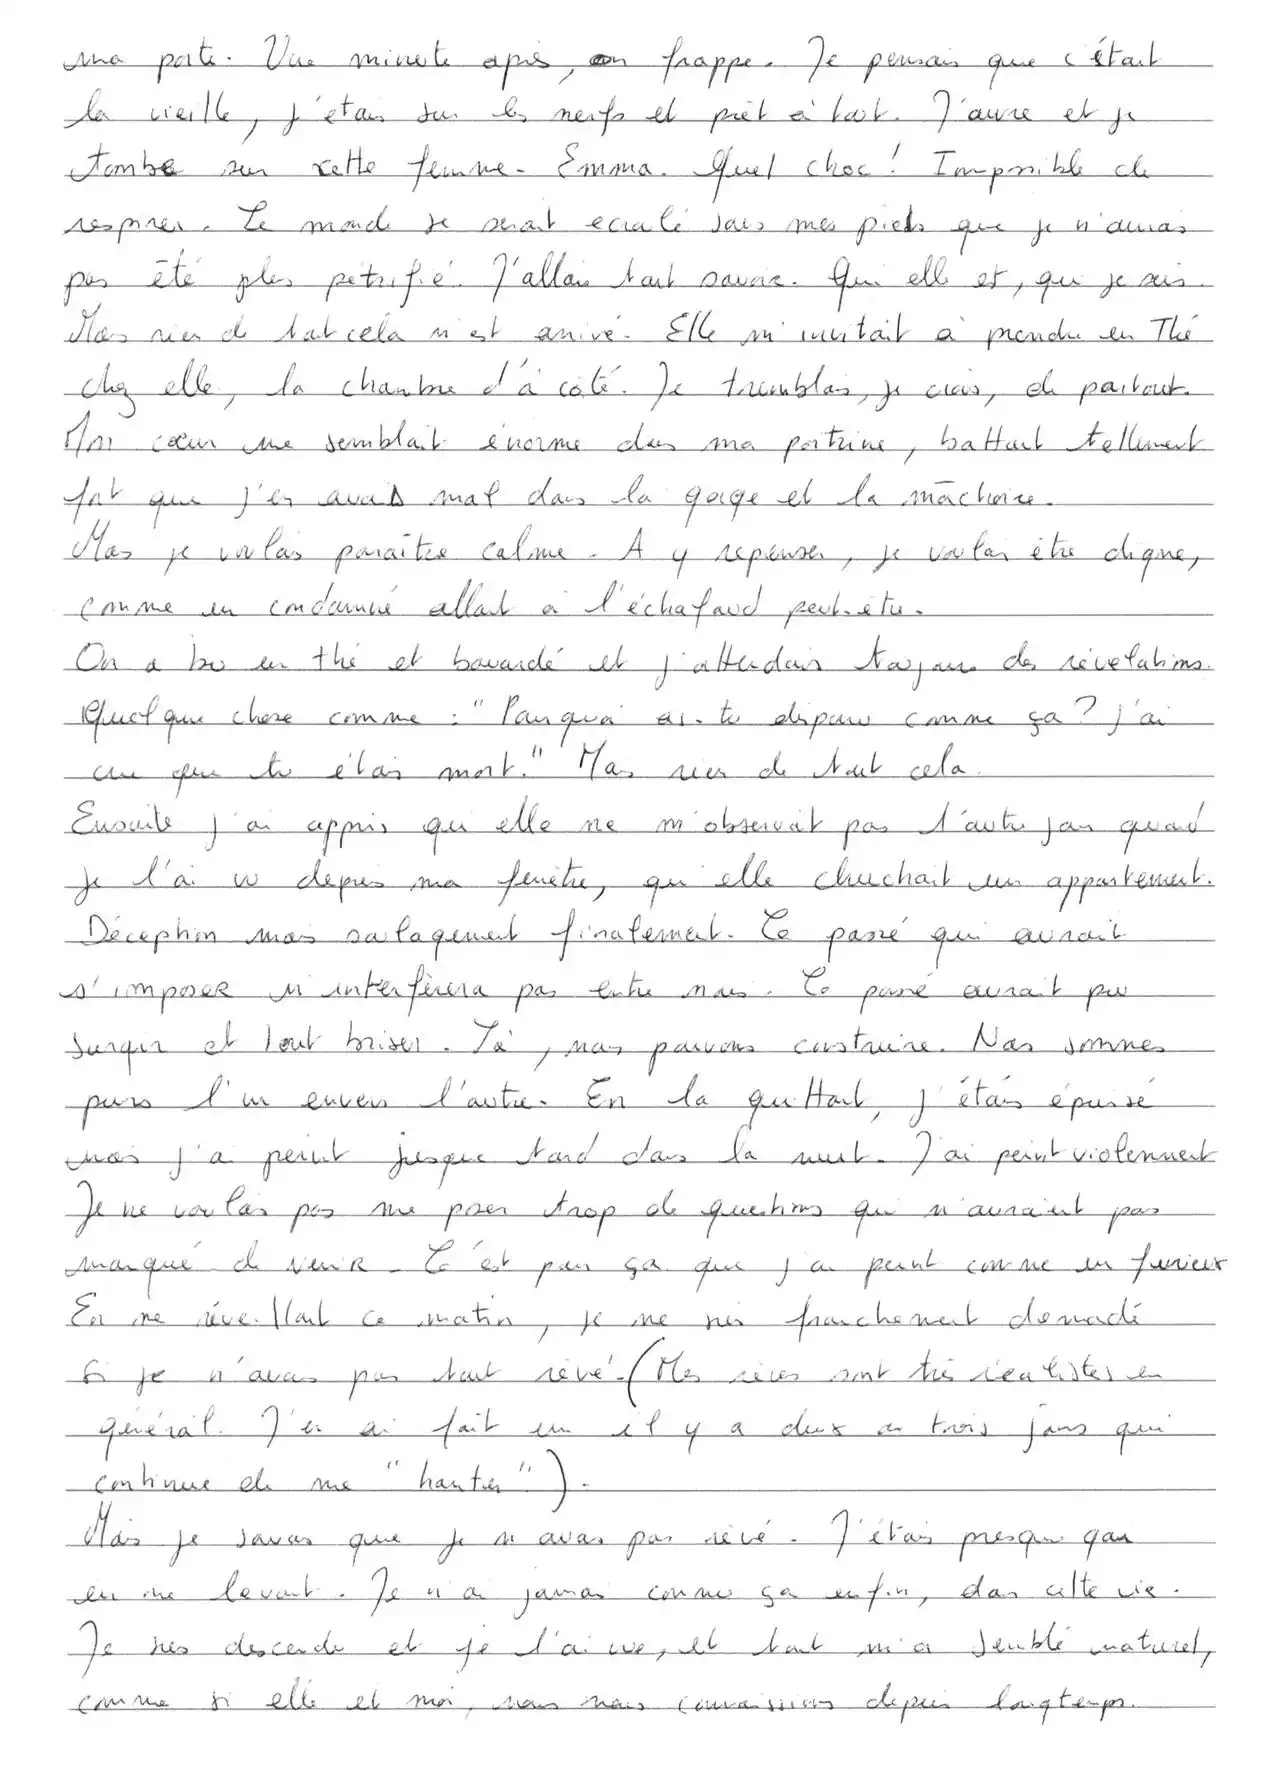 ma porte. Une minute après, on frappe. Je pensais que c'était
la vieille, j'étais sur les nerfs et prêt à tout. J'ouvre et je
tombe sur cette femme. Emma. Quel choc ! Impossible de
respirer. Le monde se serait écroulé sous mes pieds que je n'aurais
pas été plus pétrifié. J'allais tout savoir. Qui elle est, qui je suis.
Mais rien de tout cela n'est arrivé. Elle m'invitait à prendre un Thé
chez elle, la chambre d'à côté. Je tremblais, je crois, de partout.
Mon cœur me semblait énorme dans ma poitrine, battant tellement
fort que j'en avais mal dans la gorge et la mâchoire.
Mais je voulais paraître calme. A y repenser, je voulais être digne,
comme un condamné allant à l'échafaud peut-être.
On a bu un thé et bavardé et j'attendais toujours des révélations.
Quelque chose comme : "Pourquoi as-tu disparu comme ça ? J'ai
cru que tu étais mort." Mais rien de tout cela.
Ensuite j'ai appris qu'elle ne m'observait pas l'autre jour quand
je l'ai vu depuis ma fenêtre, qu'elle cherchait un appartement.
Déception mais soulagement finalement. Le passé qui aurait
s'imposer n'interfèrera pas entre nous. Le passé aurait pu
surgir et tout briser. Là, nous pouvons construire. Nous sommes
purs l'un envers l'autre. En la quittant, j'étais épuisé
mais j'ai peint jusque tard dans la nuit. J'ai peint violemment
Je ne voulais pas me poser trop de questions qui n'auraient pas
manqué de venir. C'est pour ça que j'ai peint comme un furieux
En me réveillant ce matin, je me suis franchement demandé
si je n'avais pas tout rêvé. (Mes rêves sont très réalistes en
général. J'en ai fait un il y a deux ou trois jours qui
continue de me "hanter").
Mais je savais que je n'avais pas rêvé. J'étais presque gai
en me levant. Je n'ai jamais connu ça enfin, dans cette vie.
Je suis descendu et je l'ai vue, et tout m'a semblé naturel,
comme si elle et moi, nous nous connaissions depuis longtemps.